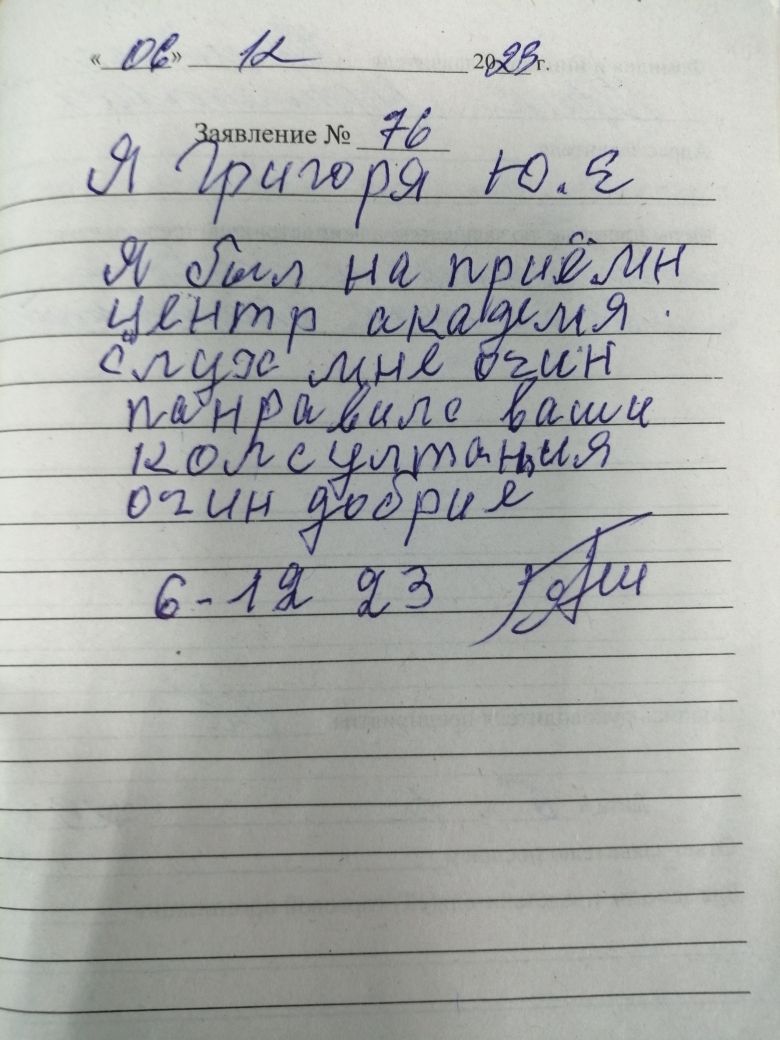 «06» 12 2023 г.
Заявление № 76
Я Григоря Ю. Е
Я был на приёмн
центр академя.
Слух мне очин
панравило ваши
колсултанция
очин добрие
6-12 23